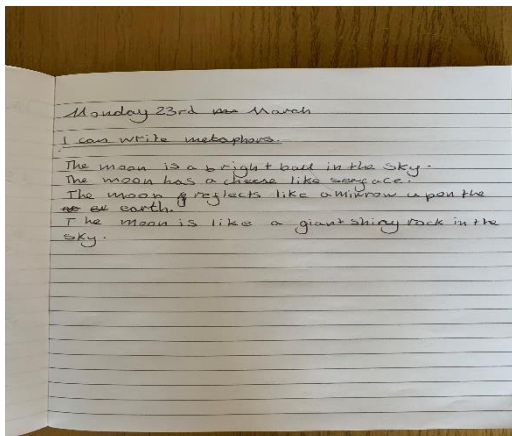 Monday 23rd March
I can write metaphors.
The moon is a bright ball in the sky.
The moon has a cheese like serface.
The moon reflects like a mirrow upon the
earth.
The moon is like a giant shiny rock in the
sky.